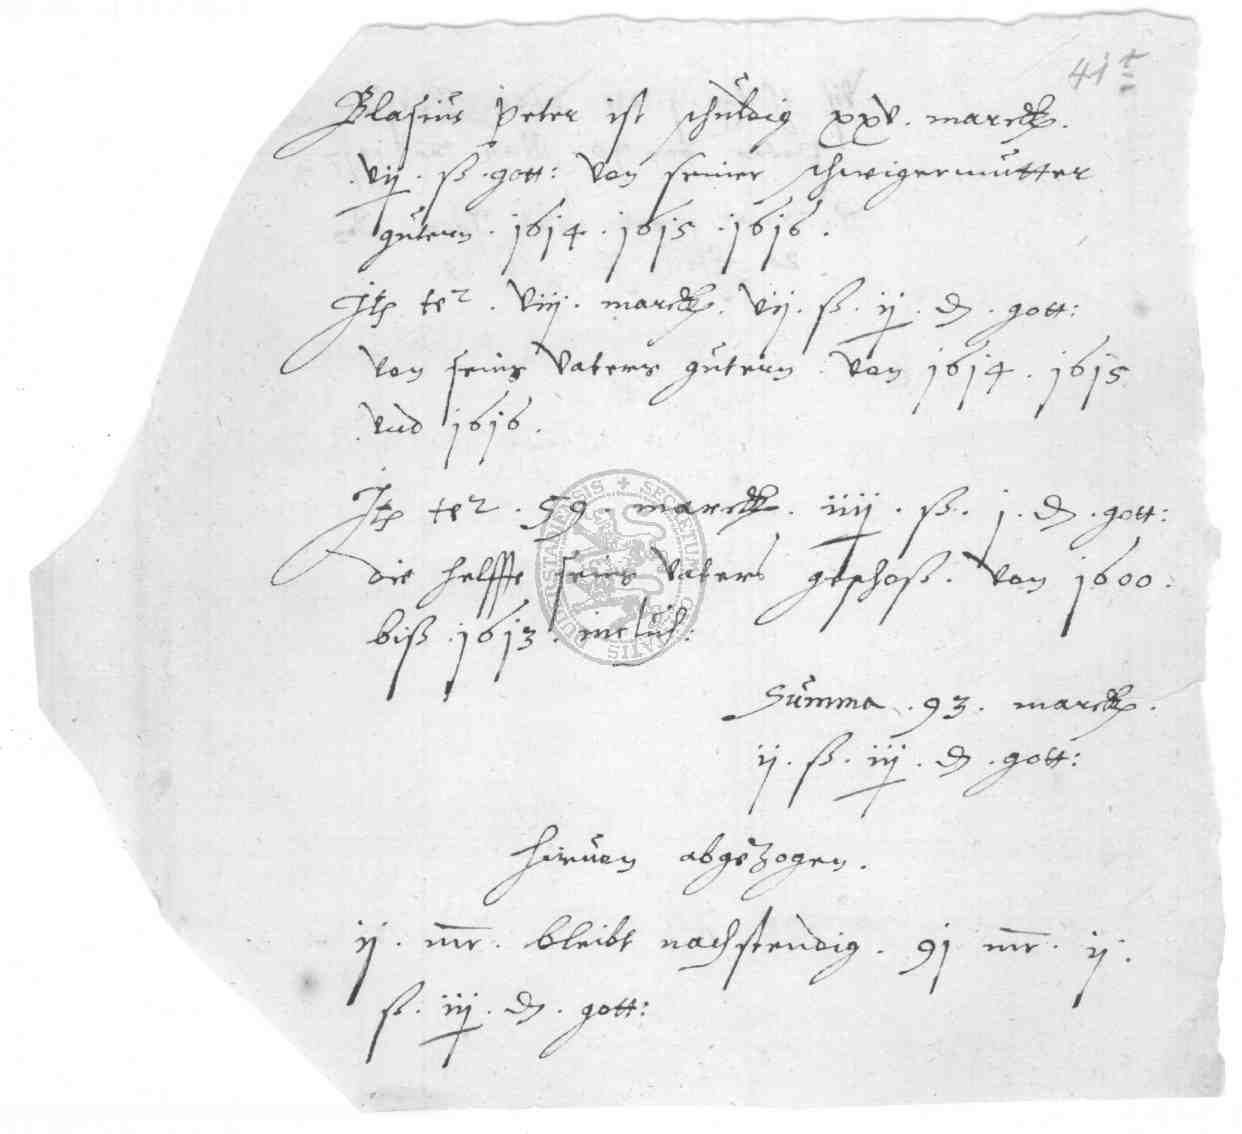 41
Blasius Peter ist schuldig xxv. marck.
vij. ß. gott: von seiner schwigermutter
gütern. 1614. 1615. 1616.
Itp ter. viij. marck. vij. ß. ij. d. gott:
von seins Vaters gütern. von 1614. 1615
vnd 1616.
Itp ter. 59. marck. iiij. ß. j. d. gott:
die helffte seins Vaters geschoß. von 1600.
biß. 1613. inclus:
Summa. 93. marck.
ij. ß. iij. d. gott:
hieruon abgezogen.
ij. mr. bleibt nachstendig. 91 mr. ij.
ß. iij. d. gott: